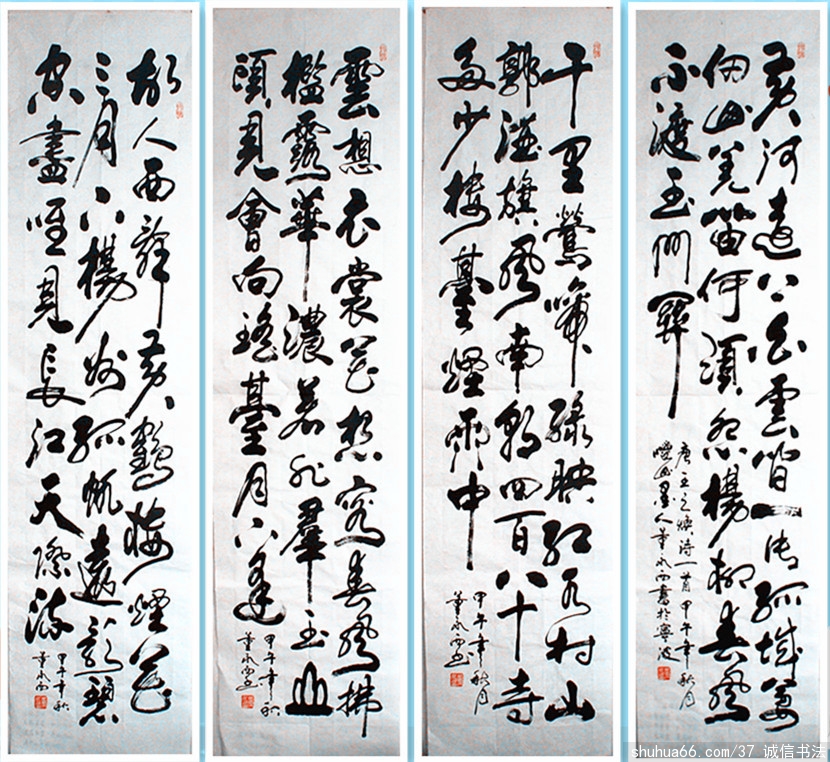 黄河遠上白雲間一片孤城萬
仞山羌笛何須怨楊柳春風
不渡玉門關
唐王之渙詩一首甲午年秋月
山墨人董永西書於寧波
千里鶯啼緑映紅水村山
郭酒旗風南朝四百八十寺
多少樓臺煙雨中
甲午年秋月
董永西書
雲想衣裳花想容春風拂
檻露華濃若非羣玉山
頭見會向瑤臺月下逢
甲午年秋
董永西書
故人西辭黄鶴樓煙花
三月下楊州孤帆遠影碧
空盡唯見長江天際流
甲午年秋
董永西
shuhua66.com/37 诚信书法